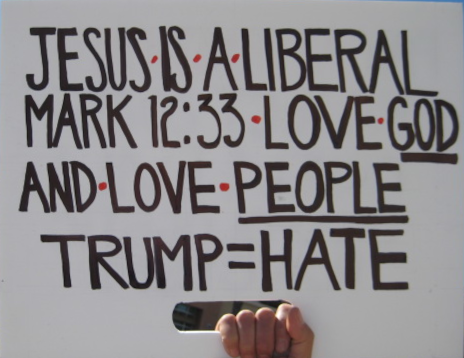 JESUS·IS·A·LIBERAL
MARK 12:33·LOVE·GOD
AND·LOVE·PEOPLE
TRUMP=HATE